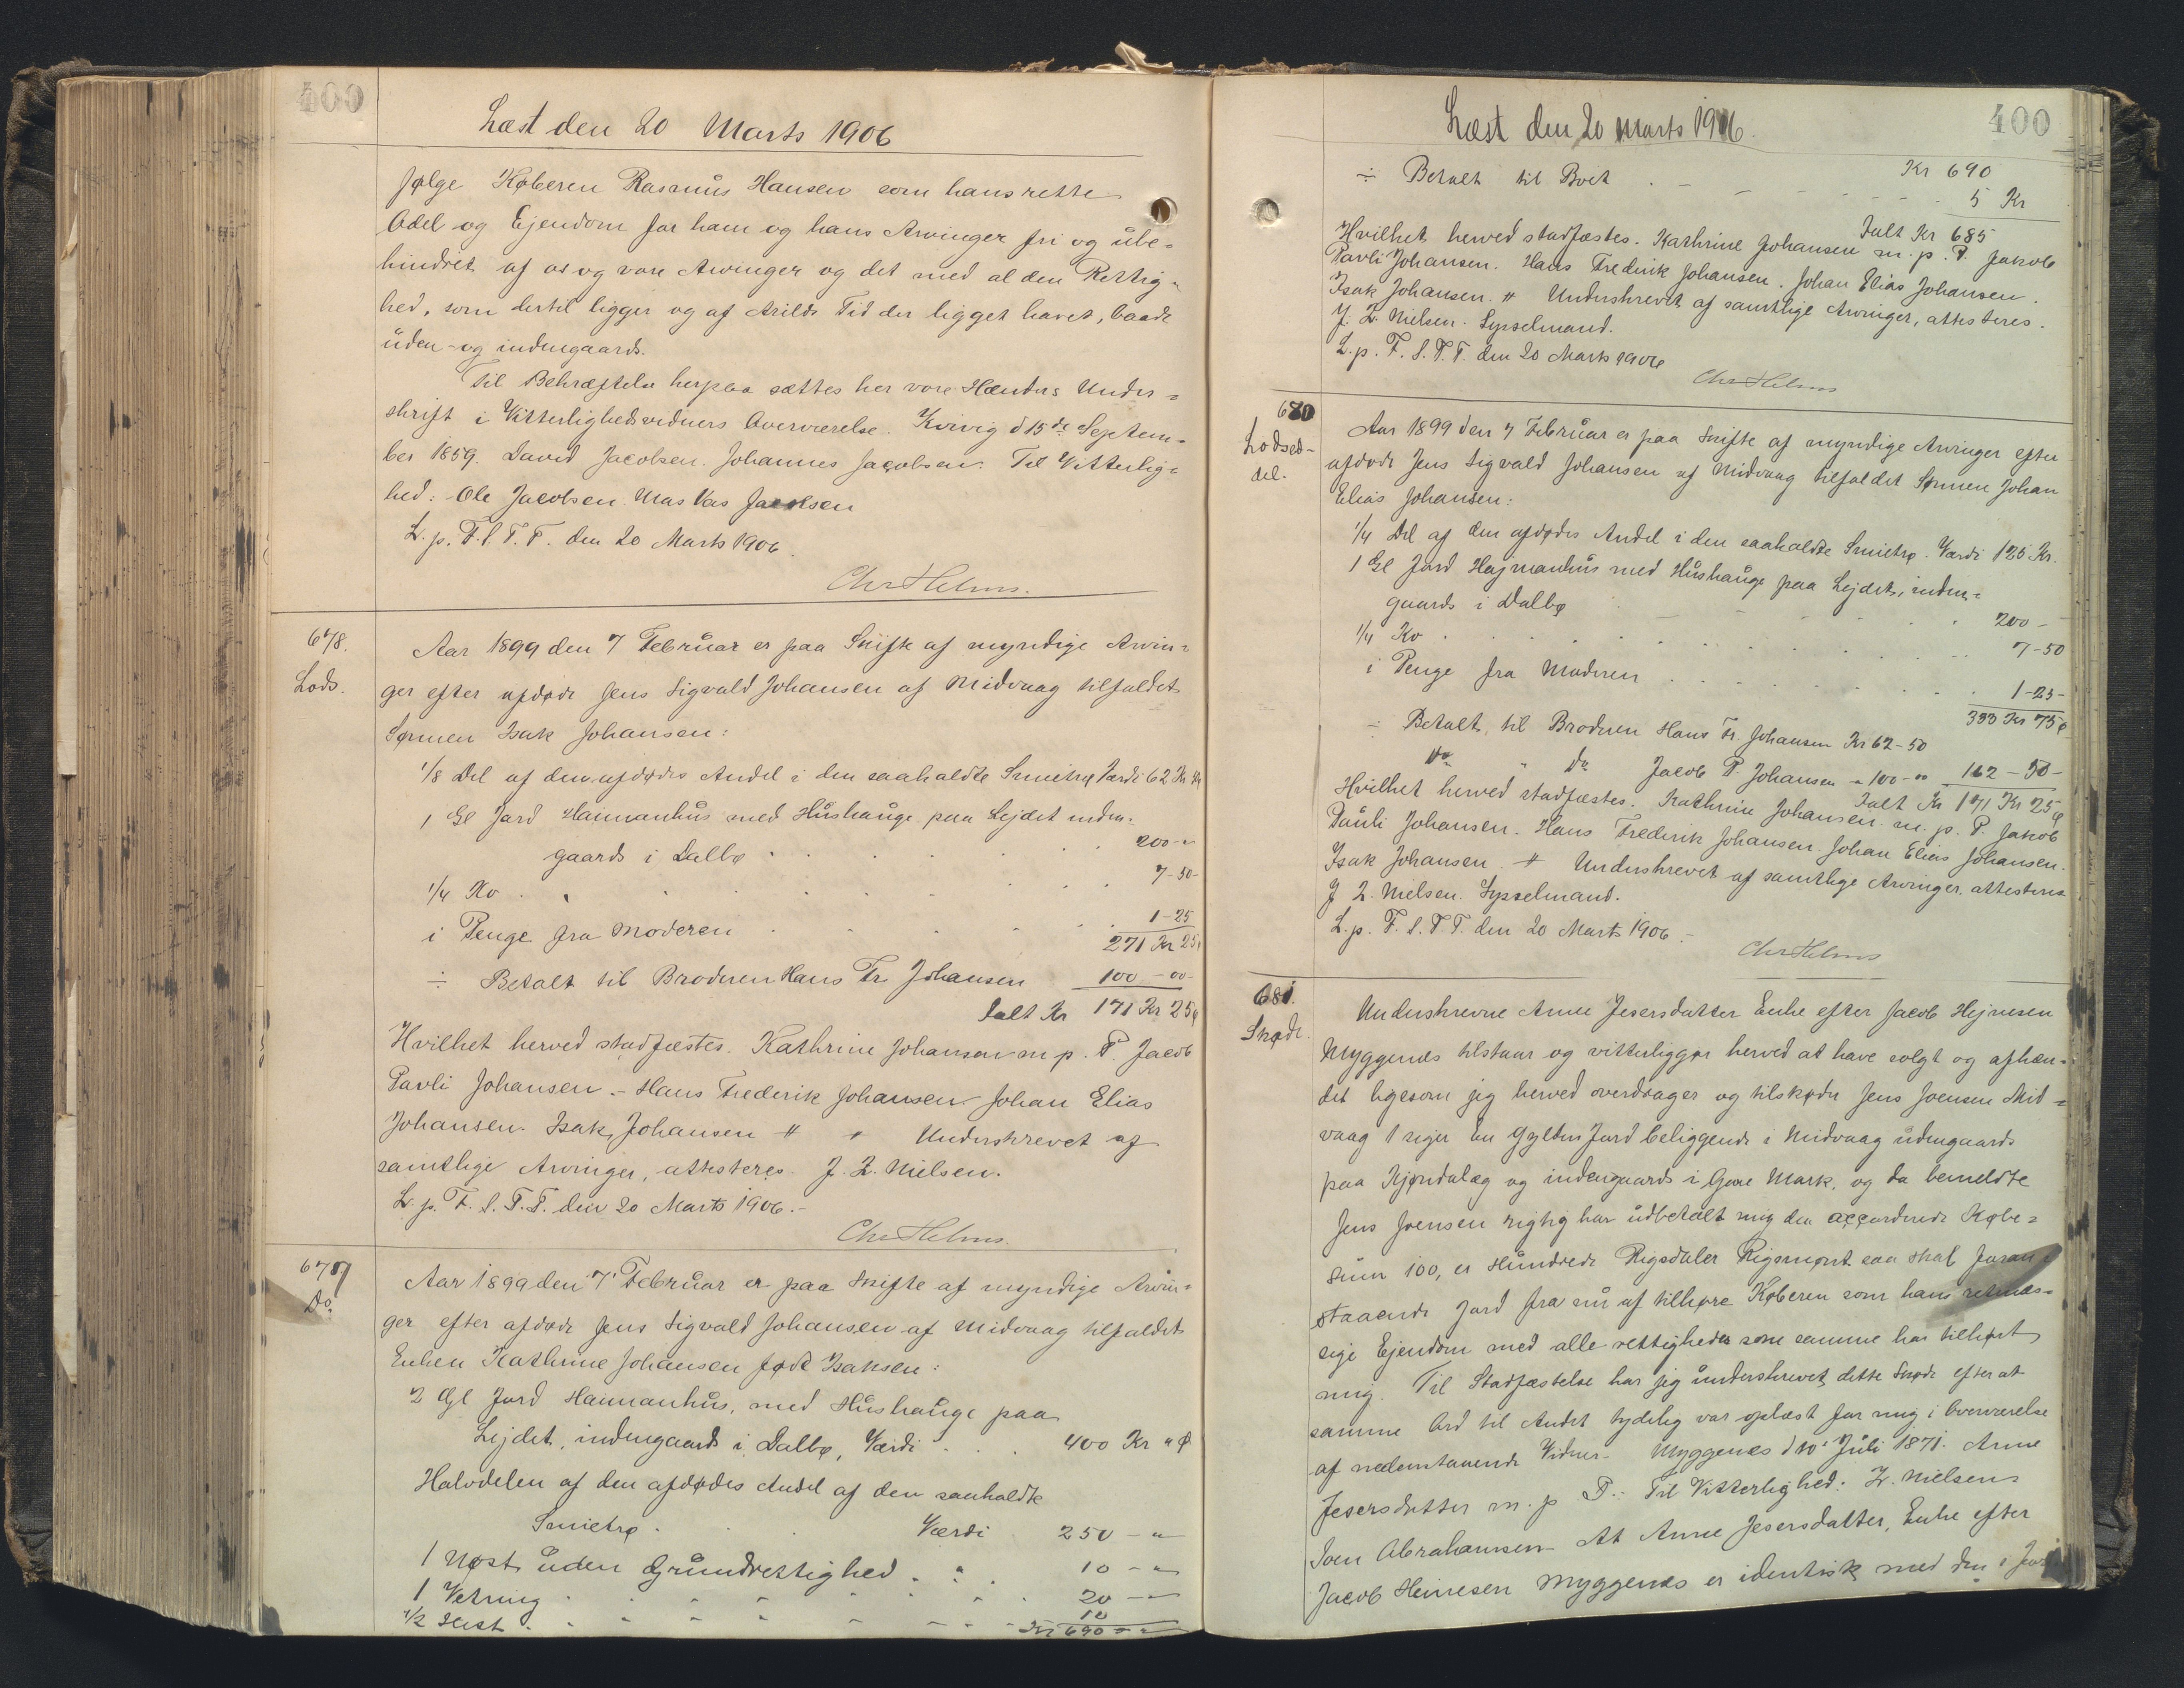 400
Læst den 20 Marts 1906
følge Køberen Rasmus Hansen som hans rette
Odel og Ejendom for ham og hans Arvinger fri og ube=
hindret af os og vore Arvinger og det med al den Rettig=
hed, som dertil ligger og af Arilds Tid der ligget havet, baade
uden- og indengaards.
Til Bekræftelse herpaa sættes her vore Hænders Under=
skrift i Vitterlighedsvidners Overværelse. Kvivig d 15de Septem=
ber 1859. David Jacobsen. Johannes Jacobsen. Til Vitterlig=
hed: Ole Jacobsen. Jacobsen
L. p. F. S. T. T. den 20 Marts 1906.
Chr Helms.
678.
Lods.
Aar 1899 den 7 Februar er paa Skifte af myndige Arvin=
ger efter afdøde Jens Sigvald Johansen af Midvaag tilfaldet
Sønnen Isak Johansen:
1/8 Del af den afdødes Andel i den saakaldte Smietrø Værdi 62 Kr 50
1 Gl Jord Heimanhus med Hushauge paa Lejdet inden=
gaards i Dalbø . . . . . 200-"
1/4 Ko . . . . . 7-50-
i Penge fra Moderen . . . . 1-25
271 Kr 25
÷ Betalt til Broderen Hans Fr. Johansen 100-00-
Ialt Kr 171 Kr 25ø
Hvilket herved stadfæstes. Kathrine Johansen m. p. P. Jacob
Pavli Johansen. - Hans Frederik Johansen. Johan Elias
Johansen. Isak Johansen # " Underskrevet af
samtlige Arvinger, attesteres. J. Z. Nielsen.
L. p. F. S. T. T. den 20 Marts 1906.-
Chr Helms.
679
Do.
Aar 1899 den 7' Februar er paa Skifte af myndige Arvin=
ger efter afdøde Jens Sigvald Johansen af Midvaag tilfaldet
Enken Kathrine Johansen født Isaksen:
2 Gl Jord Heimanhus, med Hushauge paa
Lejdet, indengaards i Dalbø, Værdi . . . 400 Kr " Ø
Halvdelen af den afdødes Andel af den saakaldte
Smietrø . . Værdi 250 - "
1 Nøst uden Grundrettighed . " . 10 - "
1 Vetring . . . . . 20 - "
1/2 Hest . . . . . 10
Kr 690 - "
Læst den 20 Marts 1906.
400
Kr 690
÷ Betalt til Boet . - - - - - 5 Kr
Ialt Kr 685
Hvilket herved stadfæstes. Kathrine Johansen m. p. P. Jakob
Pavli Johansen. Hans Frederik Johansen. Johan Elias Johansen.
Isak Johansen. # Underskrevet af samtlige Arvinger, attesteres.
J. Z. Nielsen. Sysselmand.
L. p. F. S. T. T. den 20 Marts 1906
Chr Helms
680
Lodsed-
del.
Aar 1899 den 7 Februar er paa Skifte af myndige Arvinger efter
afdøde Jens Sigvald Johansen af Midvaag tilfaldet Sønnen Johan
Elias Johansen:
1/4 Del af den afdødes Andel i den saakaldte Smietrø. Værdi 125 Kr.
1 Gl Jord Hejmanhus med Hushauge paa Lejdet, inden=
gaards i Dalbø . . . . 200 -
1/4 Ko . . . . . 7-50
i Penge fra Moderen . . . . . 1-25-
333 Kr 75ø
÷ Betalt til Broderen Hans Fr. Johansen Kr 62-50
Do " Do Jacob P. Johansen " 100-00 162-50-
Ialt Kr 171 Kr 25ø
Hvilket herved stadfæstes. Kathrine Johansen. m. p. P. Jakob
Pauli Johansen. Hans Frederik Johansen. Johan Elias Johansen.
Isak Johansen. # Underskrevet af samtlige Arvinger, attesteres
J. Z. Nielsen. Sysselmand.
L. p. F. S. T. T. den 20 Marts 1906.-
Chr Helms
681.
Skøde.
Underskrevne Anne Jesersdatter Enke efter Jacob Hejnesen
Myggenæs tilstaar og vitterliggør herved at have solgt og afhæn=
det ligesom jeg herved overdrager og tilskøder Jens Joensen Mid=
vaag 1 siger En Gylden Jord beliggende i Midvaag udengaards
paa Kjøndalæg og indengaards i Gøre Mark, og da bemeldte
Jens Joensen rigtig har udbetalt mig den accorderede Købe=
sum 100, er Hundrede Rigsdaler Rigsmønt saa skal foran=
staaende Jord fra nu af tilhøre Køberen som hans retmæs=
sige Ejendom med alle rettigheder som samme har tilhørt
mig. Til Stadfæstelse har jeg underskrevet dette Skøde efter at
samme Ord til Andet tydelig var oplæst for mig i Overværelse
af nedenstaaende Vidner. Myggenæs d 10' Juli 1871. Anne
Jesersdatter m. p P.: Til Vitterlighed: Z. Nielsen
Joen Abrahamsen - At Anne Jesersdatter, Enke efter
Jacob Heinesen Myggenæs er identisk med den i For